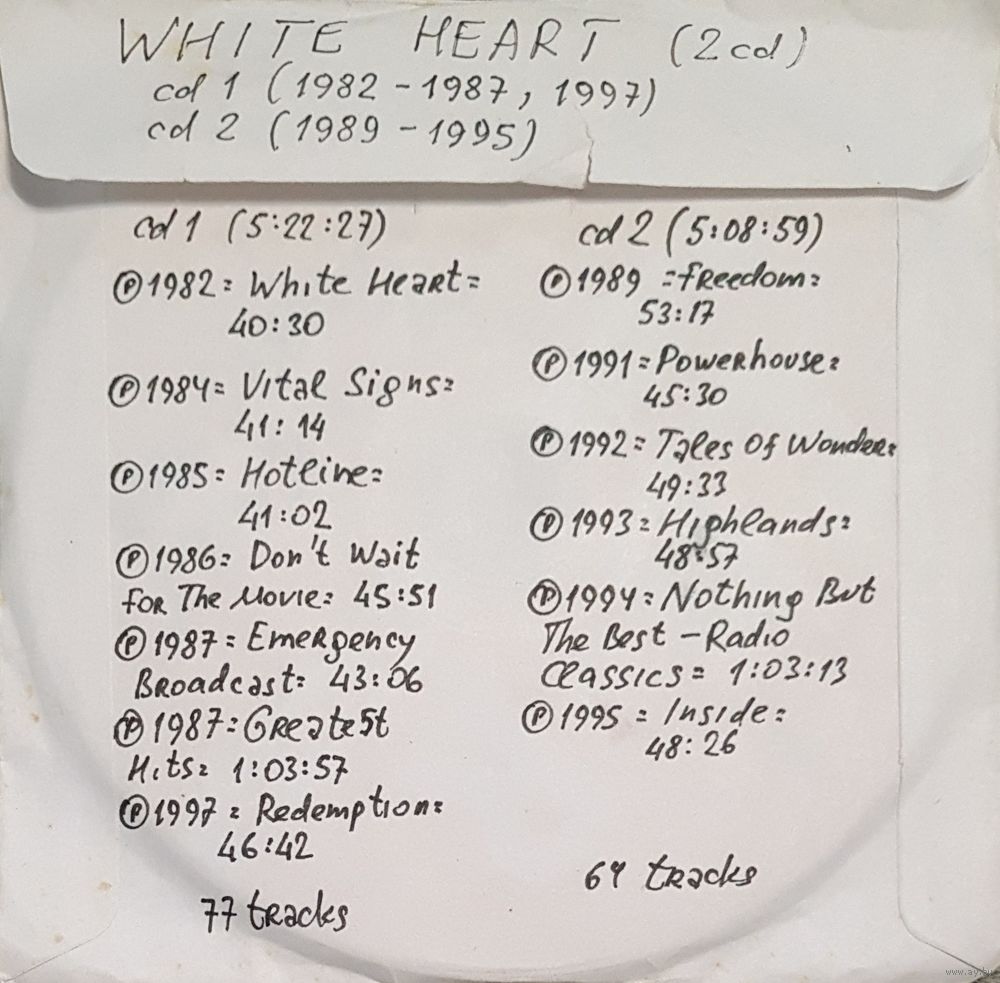 WHITE HEART (2cd)
cd 1 (1982 - 1987, 1997)
cd 2 (1989 - 1995)
cd 1 (5:22:27)
Ⓟ 1982 = White Heart =
40:30
Ⓟ 1984 = Vital Signs =
41:14
Ⓟ 1985 = Hotline =
41:02
Ⓟ 1986 = Don't Wait
For The Movie = 45:51
Ⓟ 1987 = Emergency
Broadcast = 43:06
Ⓟ 1987 = Greatest
Hits = 1:03:57
Ⓟ 1997 = Redemption =
46:42
77 tracks
cd 2 (5:08:59)
Ⓟ 1989 = freedom =
53:17
Ⓟ 1991 = Powerhouse =
45:30
Ⓟ 1992 = Tales Of Wonder =
49:33
Ⓟ 1993 = Highlands =
48:57
Ⓟ 1994 = Nothing But
The Best - Radio
Classics = 1:03:13
Ⓟ 1995 = Inside =
48:26
www.ay.by